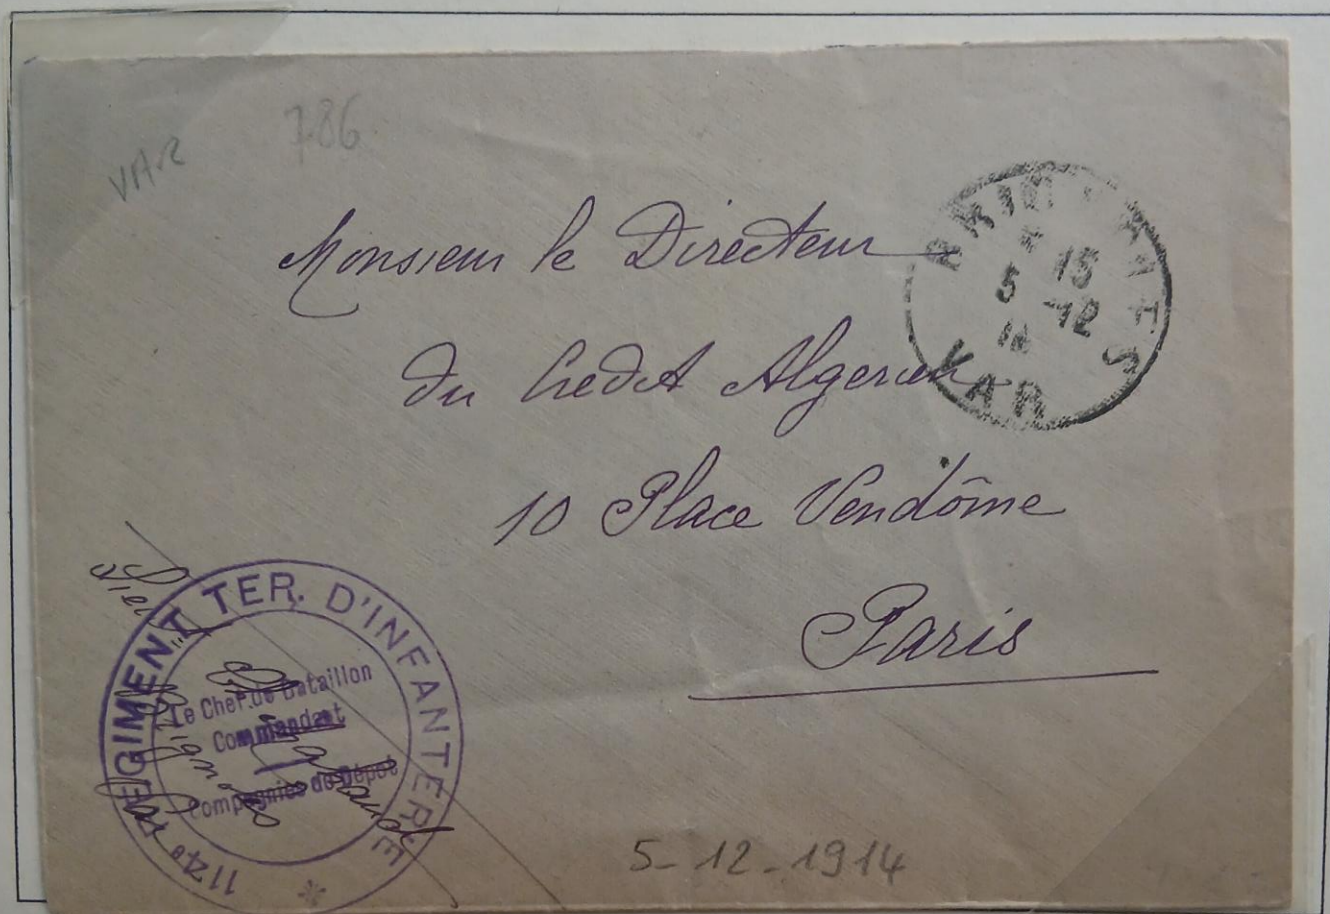 VAR
786
Monsieur le Directeur
du Crédit Algérien
10 Place Vendôme
Paris
VAR
15
5 -12
14
114e REGIMENT TER. D'INFANTERIE
Le Chef de Bataillon
Commandant
Compagnies de Dépôt
5-12-1914